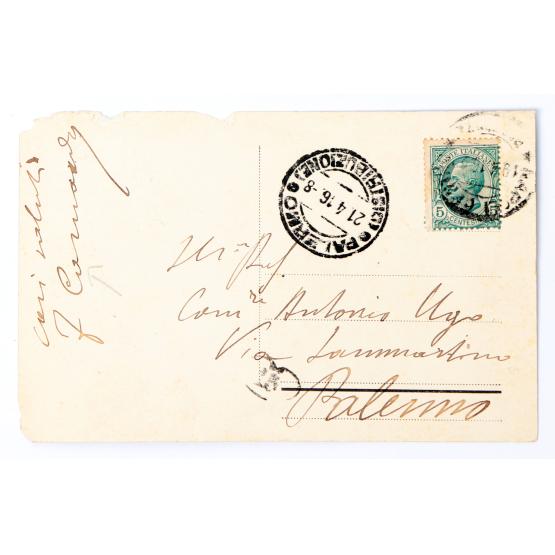 cari saluti
PALERMO (DISTRIBUZIONE)
21.4.16.-8
POSTE ITALIANE
5
CENTESIMI
Ill.mo Prof.
Com.re Antonio Ugo
Via Sammartino
Palermo